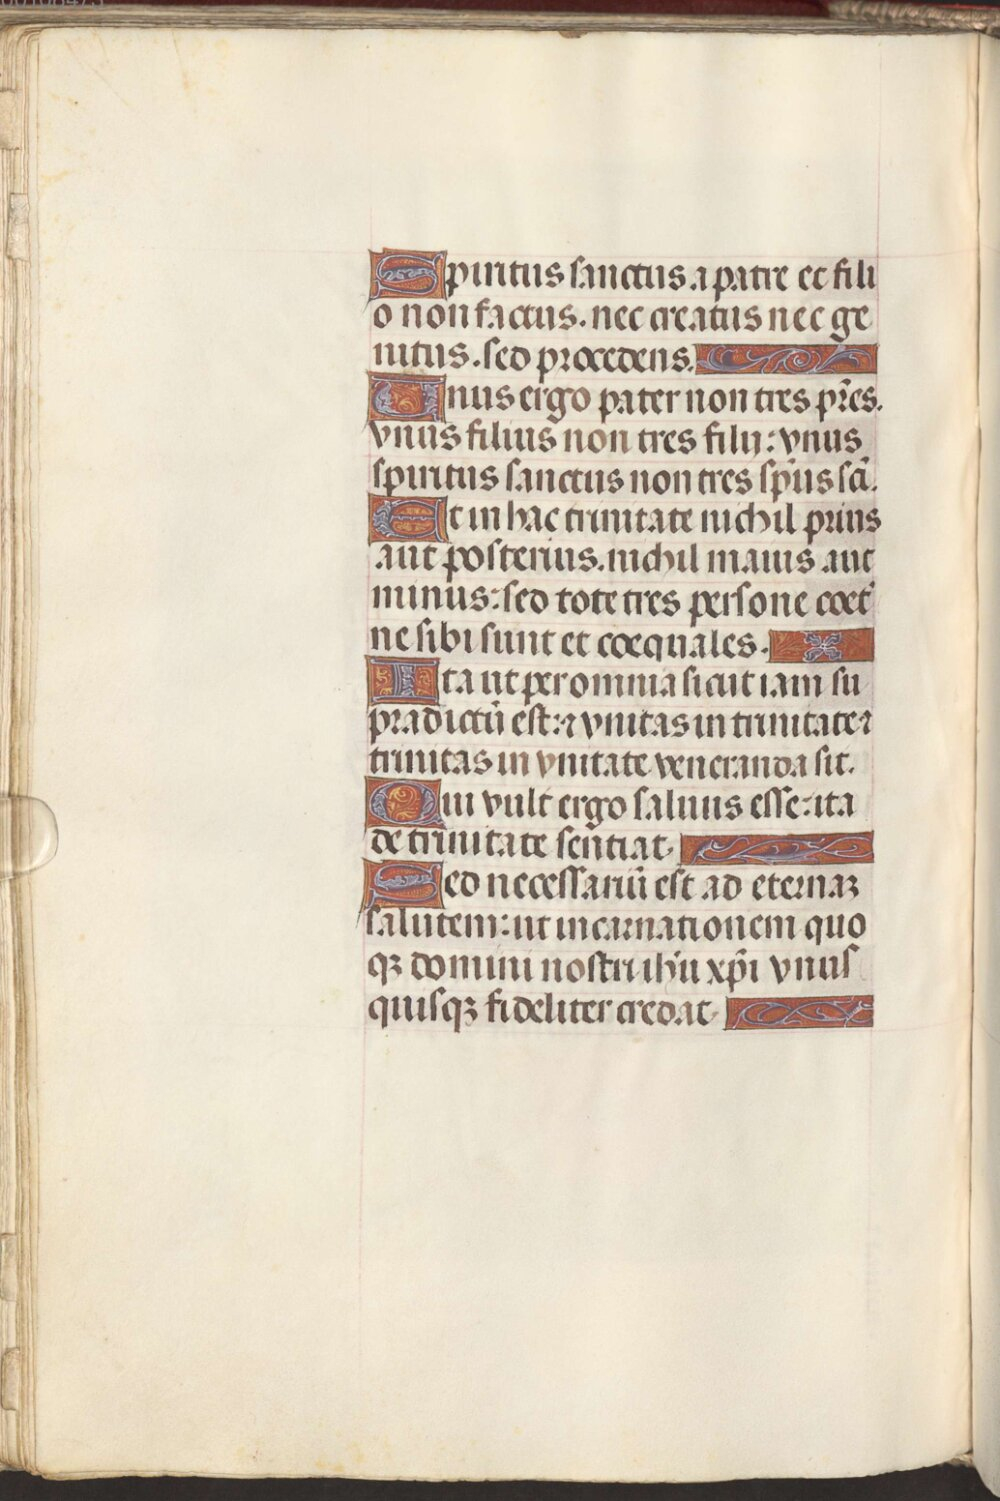 Spiritus sanctus. a patre et fili
o non factus. nec creatus nec ge
nitus. sed procedens.
Unus ergo pater non tres pr̄es.
vnus filius non tres filij: vnus
spiritus sanctus non tres sp̄us sc̄i.
Et in hac trinitate nichil prius
aut posterius. nichil maius aut
minus: sed tote tres persone coet̄
ne sibi sunt et coequales.
Ita ut per omnia sicut iam su
pradictū est: ⁊ vnitas in trinitate ⁊
trinitas in vnitate veneranda sit.
Qui vult ergo saluus esse: ita
de trinitate sentiat.
Sed necessariū est ad eternaꝫ
salutem: ut incarnationem quo
qꝫ domini nostri ihū xp̄i vnus
quisqꝫ fideliter credat.